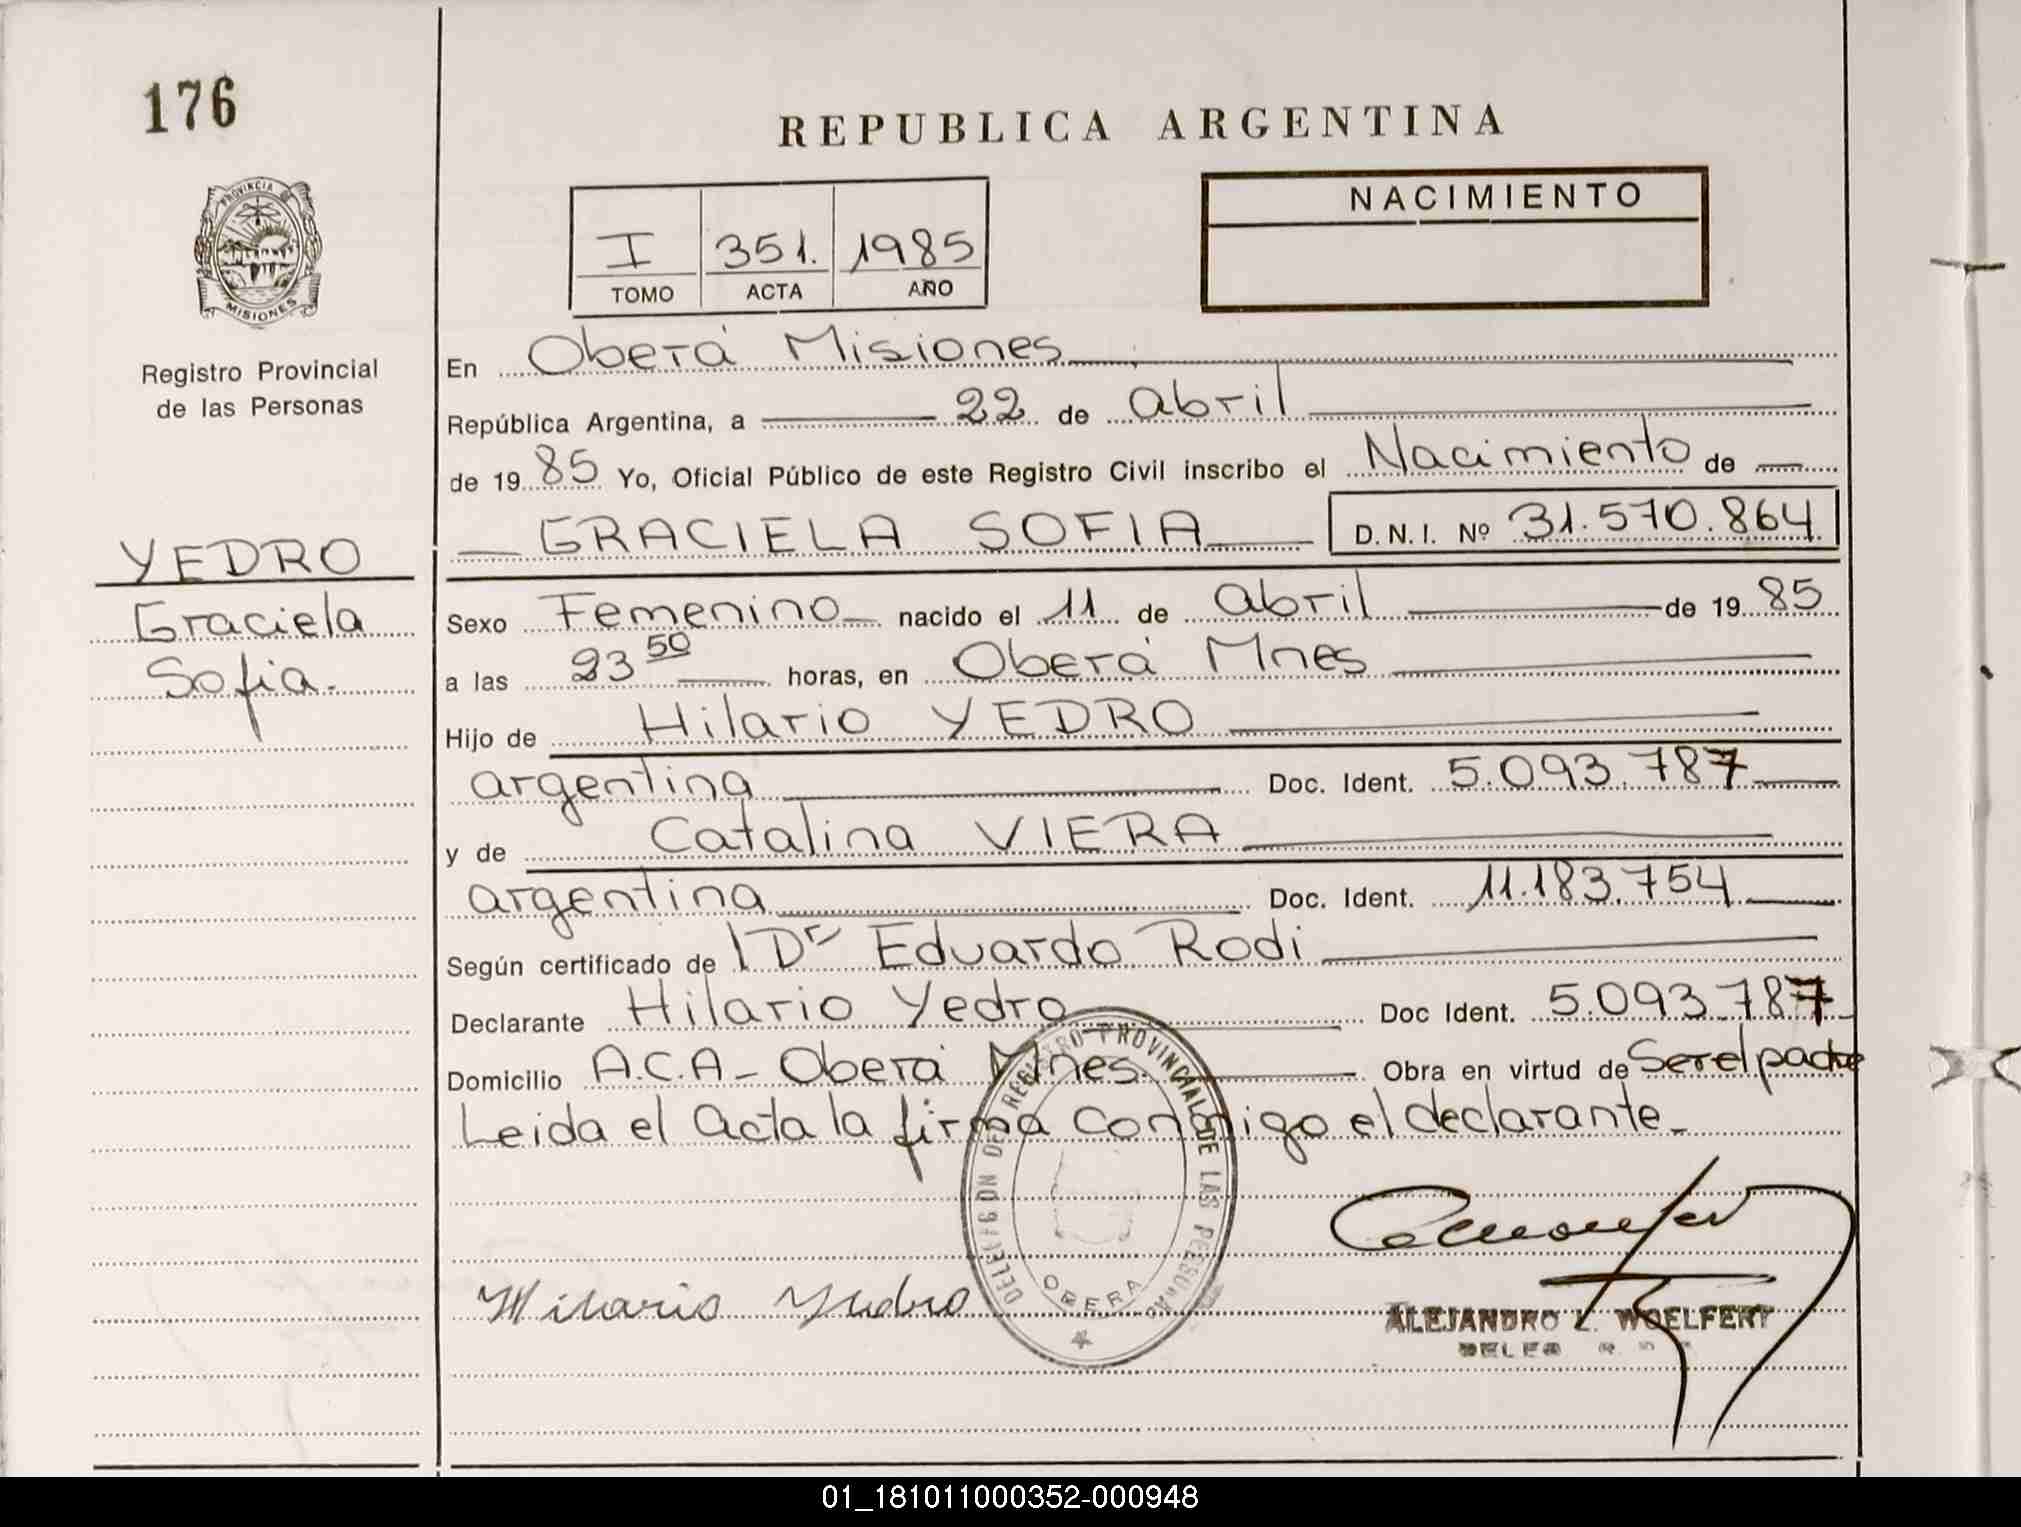 176
REPUBLICA ARGENTINA
NACIMIENTO
I 351. 1985
TOMO ACTA AÑO
PROVINCIA DE
MISIONES
Registro Provincial
de las Personas
YEDRO
Graciela
Sofia.
En Oberá Misiones
República Argentina, a 22 de abril
de 1985 Yo, Oficial Público de este Registro Civil inscribo el Nacimiento de
GRACIELA SOFIA D.N.I. Nº 31.570.864
Sexo Femenino nacido el 11 de abril de 1985
a las 23 50 horas, en Oberá Mnes
Hijo de Hilario YEDRO
argentina Doc. Ident. 5.093.787
y de Catalina VIERA
argentina Doc. Ident. 11.183.754
Según certificado de Dr Eduardo Rodi
Declarante Hilario Yedro Doc Ident. 5.093.787
Domicilio A.C.A - Oberá Mnes. Obra en virtud de Ser el padre
Leida el acta la firma conmigo el declarante.
REGISTRO PROVINCIAL DE LAS PERSONAS
OBERA
Hilario Yedro
ALEJANDRO L. WOELFERT
01_181011000352-000948